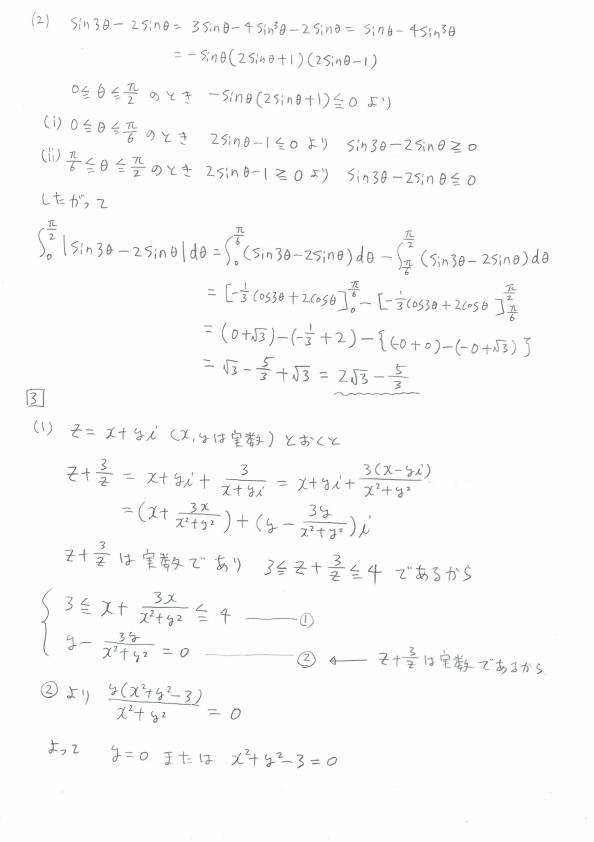 (2) sin3θ - 2sinθ = 3sinθ - 4sin³θ - 2sinθ = sinθ - 4sin³θ
= -sinθ(2sinθ+1)(2sinθ-1)
0≦θ≦π/2 のとき -sinθ(2sinθ+1)≦0 より
(i) 0≦θ≦π/6 のとき 2sinθ-1≦0 より sin3θ-2sinθ≧0
(ii) π/6≦θ≦π/2 のとき 2sinθ-1≧0 より sin3θ-2sinθ≦0
したがって
∫₀^{π/2} |sin3θ-2sinθ|dθ = ∫₀^{π/6} (sin3θ-2sinθ)dθ - ∫_{π/6}^{π/2} (sin3θ-2sinθ)dθ
= [-1/3 cos3θ+2cosθ]₀^{π/6} - [-1/3 cos3θ+2cosθ]_{π/6}^{π/2}
= (0+√3)-(-1/3+2)-{(-0+0)-(-0+√3)}
= √3 - 5/3 + √3 = 2√3 - 5/3
3
(1) z = x+yi (x, yは実数) とおくと
z + 3/z = x+yi + 3/(x+yi) = x+yi + 3(x-yi)/(x²+y²)
= (x + 3x/(x²+y²)) + (y - 3y/(x²+y²))i
z + 3/z は実数であり 3≦z+3/z≦4 であるから
{ 3≦x + 3x/(x²+y²) ≦4 ――― ①
y - 3y/(x²+y²) = 0 ――― ② ← z+3/z は実数であるから
② より y(x²+y²-3)/(x²+y²) = 0
よって y=0 または x²+y²-3=0